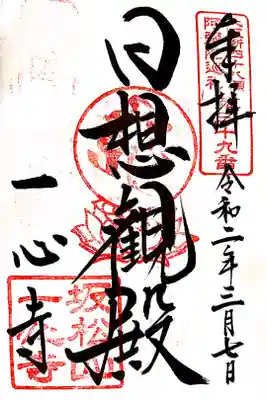 奉拝 令和二年三月七日
十九番
日想観殿
一心寺
坂松山
一心寺